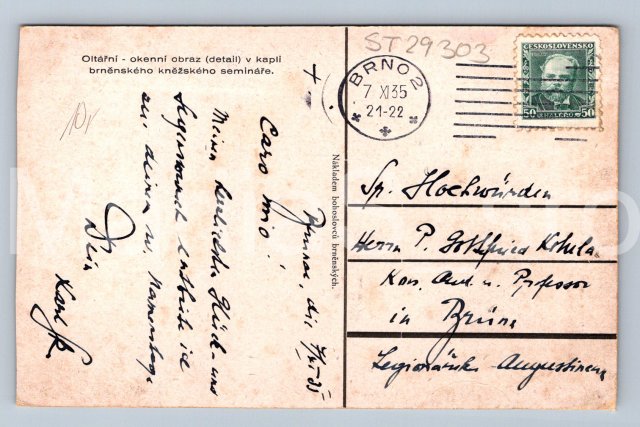 Oltářní - okenní obraz (detail) v kapli
brněnského kněžského semináře.
ST 29303
BRNO 2
7 XI 35
21-22
ČESKOSLOVENSKO
50 HALÉŘŮ 50
Nákladem bohoslovců brněnských.
10,-
+
Brünn, die 7/XI 35
Caro mio!
Meinen herzlichsten Glück und
Segenswunsch entbiete ich
zu deinem w. Namenstage
Dein
Karl
Sr. Hochwürden
Herrn P. Gottfried
Kons. Aud. u. Professor
in Brünn
Augustiner